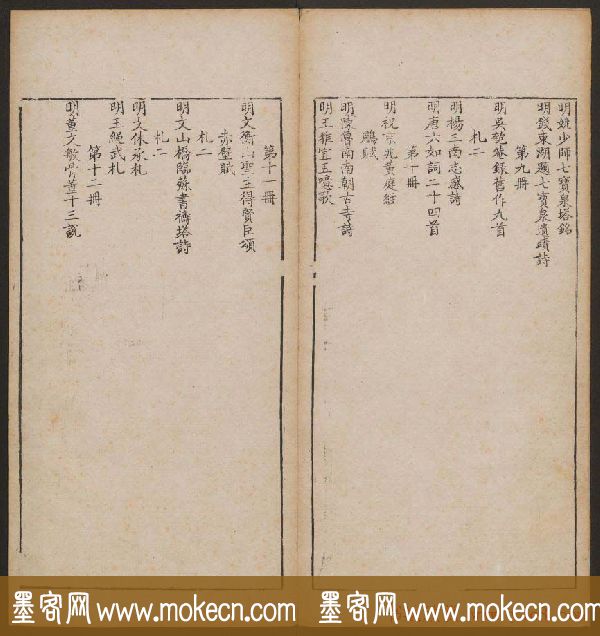 明姚少師七寶泉塔銘
明錢東湖題七寶泉遺蹟詩
第九冊
明吳匏菴錄舊作九首
札二
明楊三南志感詩
明唐六如詞二十四首
第十冊
明祝京兆黃庭經
鵩賦
明陳魯南南朝古寺詩
明王雅宜五噫歌
第十一冊
明文衡山聖主得賢臣頌
赤壁賦
札二
明文山橋臨蘇書禱塔詩
札二
明文休承札
明王繩武札
第十二冊
明董文敏骨董十三說
墨客网 www.mokecn.com
墨客网 www.mokecn.com